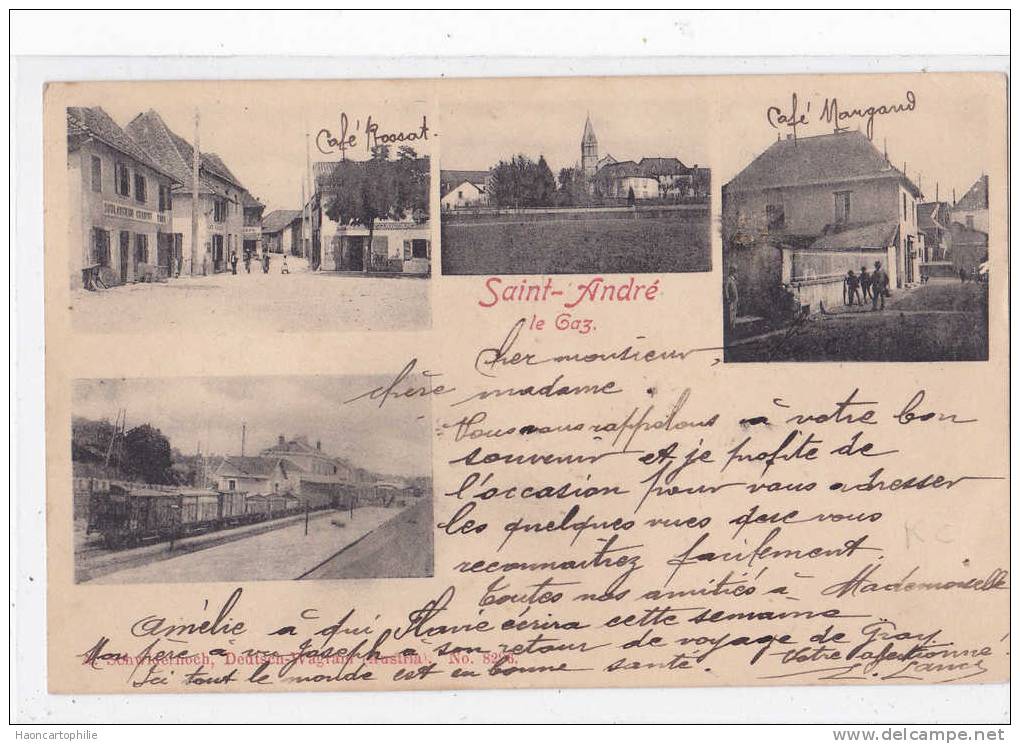 Café Rossat.
Café Margand
Saint-André
le Gaz.
Cher monsieur,
chère madame.
Nous nous rappelons à votre bon
souvenir et je profite de
l'occasion pour vous adresser
les quelques vues que vous
reconnaîtrez facilement.
Toutes nos amitiés à Mademoiselle
Amélie à qui Flavie écrira cette semaine
Mon père a vu Joseph à son retour de voyage de Gray
Ici tout le monde est en bonne santé. Votre affectionné
Schwidernoch, Deutsch-Wagram (Austria). No. 8296.
KC
Haoncartophilie
www.delcampe.net